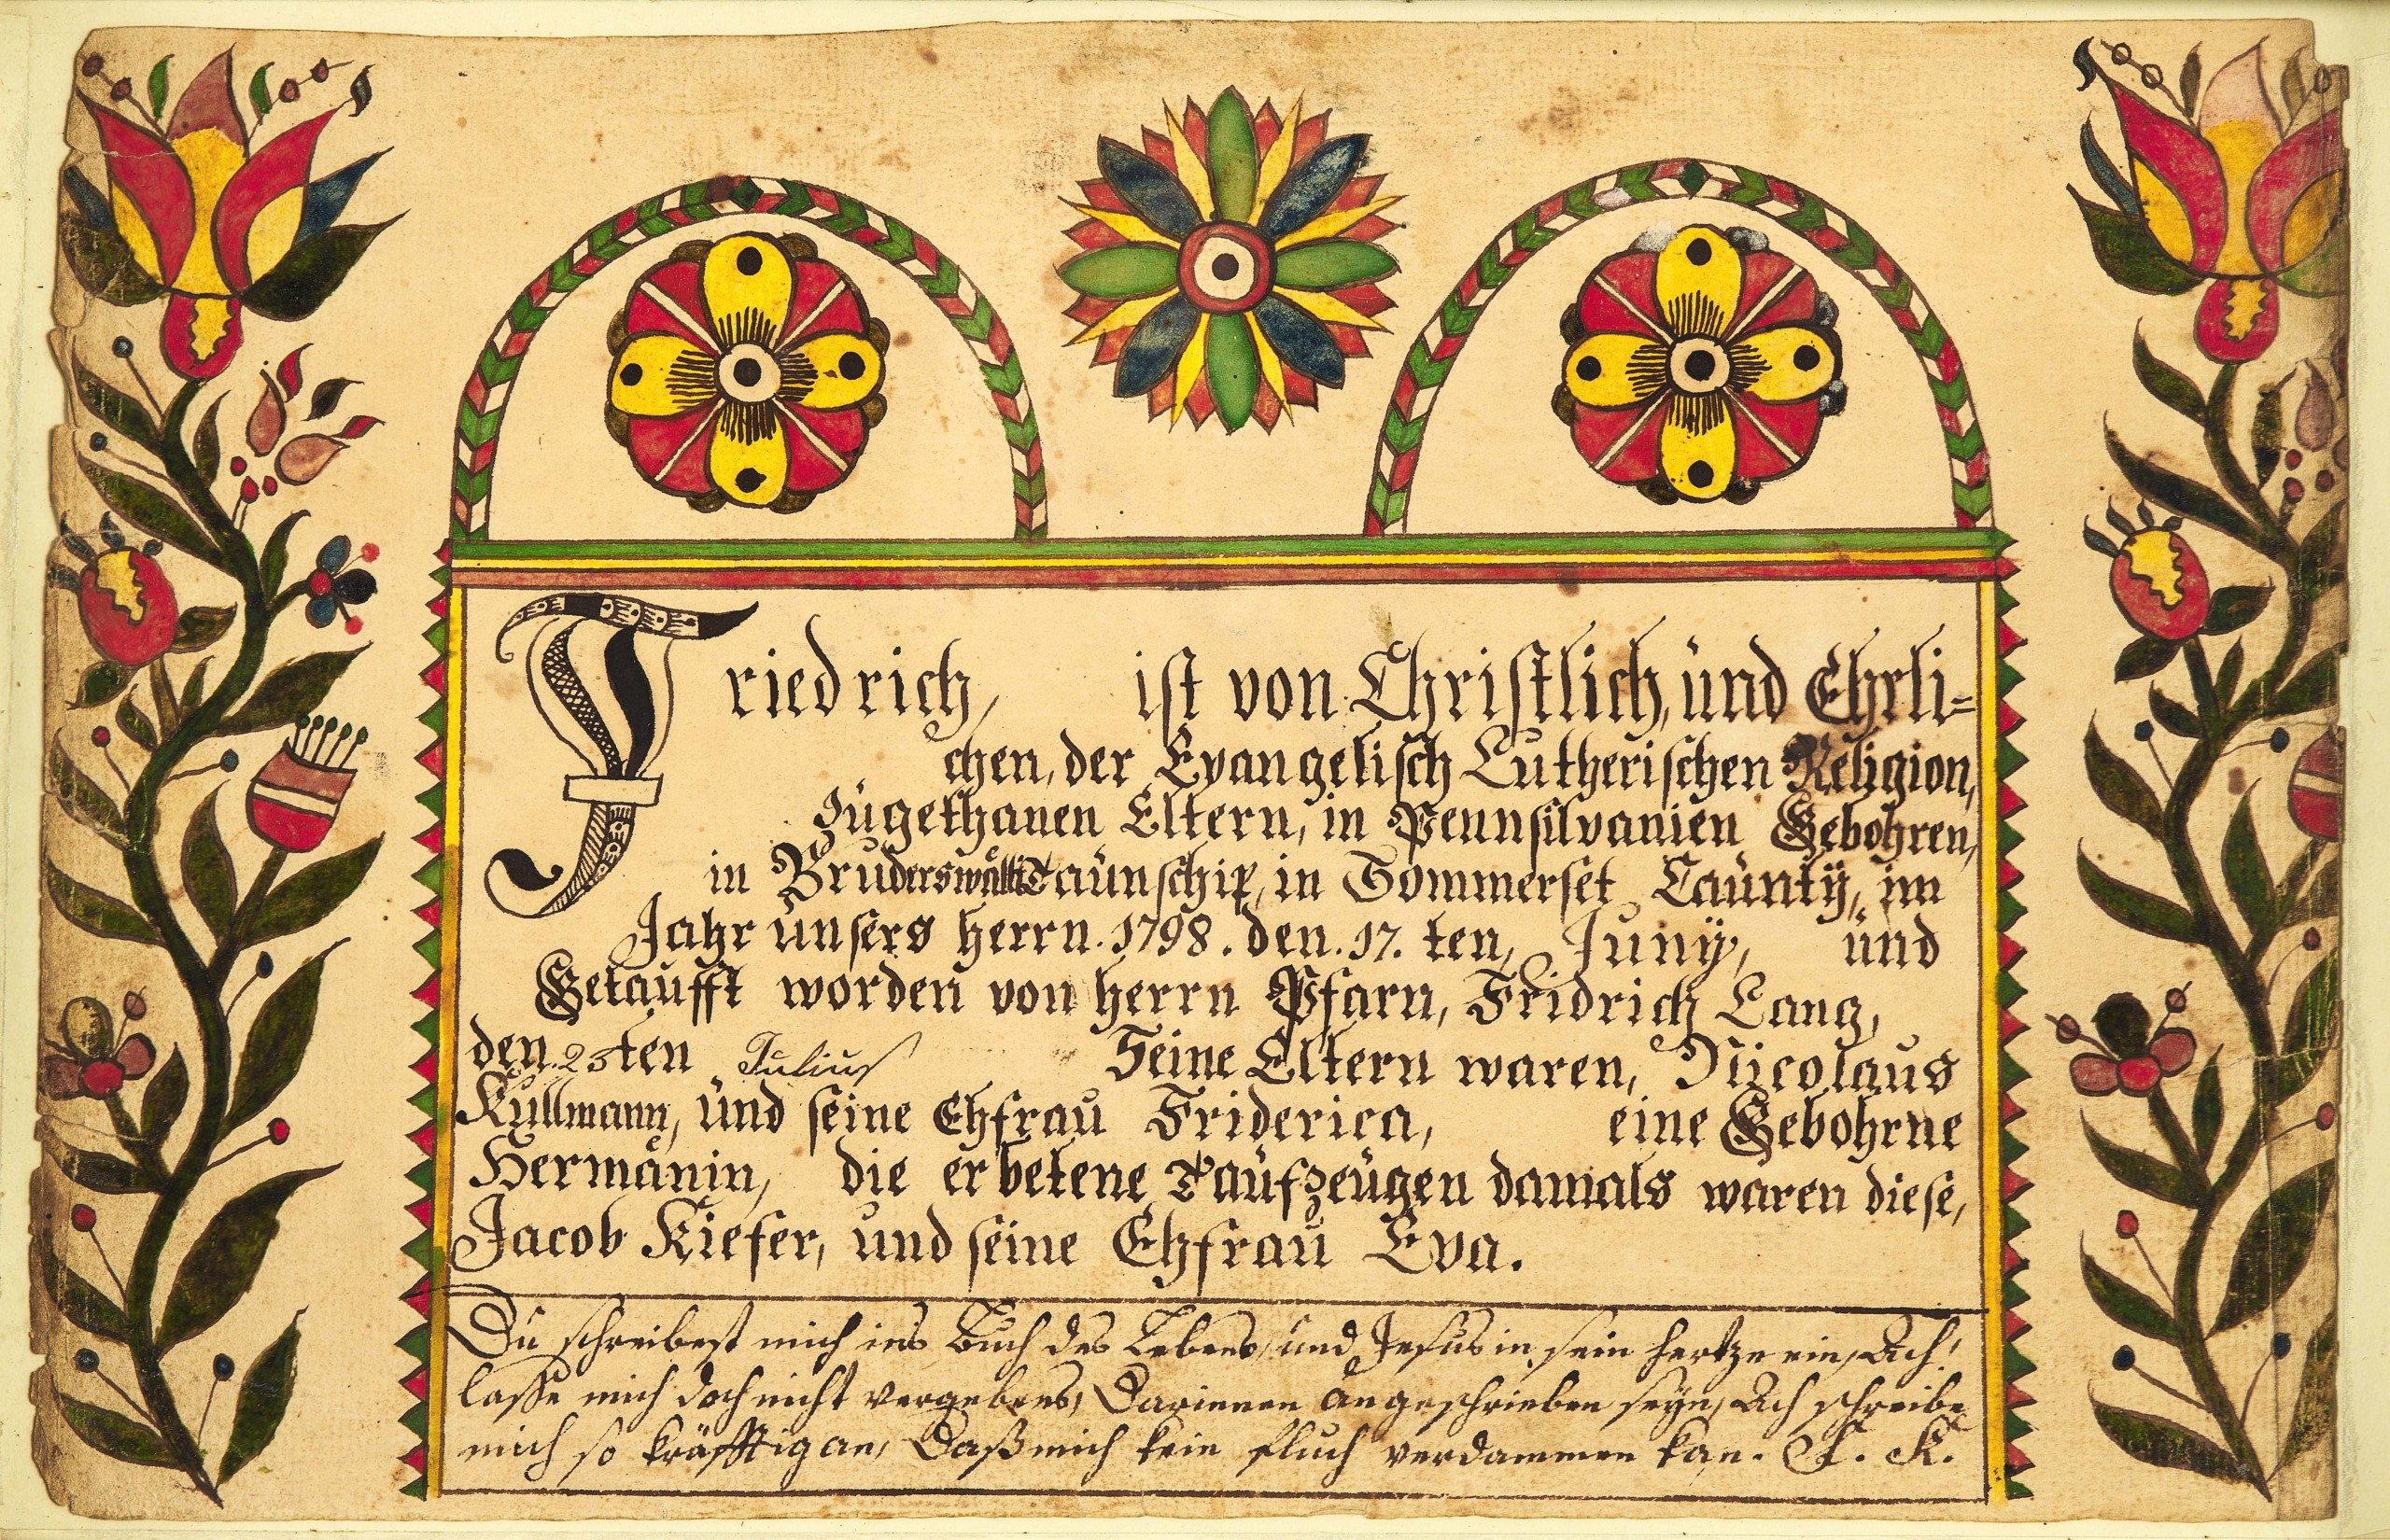 Friedrich, ist von Christlich, und Ehrli=
chen, der Evangelisch Lutherischen Religion,
Zugethanen Eltern, in Pennsilvanien Gebohren,
in Bruderswälli Taunschip, in Sommerset Caunty, im
Jahr unsers Herrn. 1798. den. 17. ten, Juny, und
Getaufft worden von Herrn Pfarn, Fridrich Lang,
den. 23ten Julius Seine Eltern waren, Nicolaus
Kullmann, und seine Ehfrau Friderica, eine Gebohrne
Hermänin, die erbetene Taufzeugen damals waren diese,
Jacob Kiefer, und seine Ehfrau Eva.
Du schreibest mich ins Buch des Lebens, und Jesus in sein Hertze ein, Ach!
lasse mich doch nicht vergebens, Darinnen angeschrieben seyn, Ach schreibe
mich so kräfftig an, Daß mich kein Fluch verdammen kan. F. K.